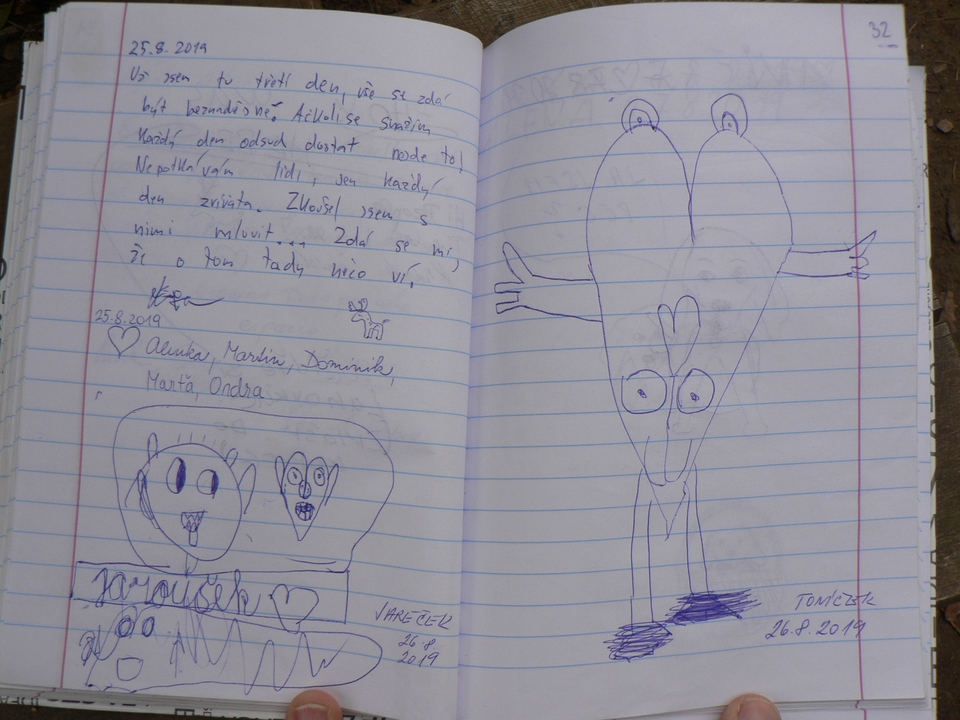 25.8.2019
Už jsem tu třetí den, vše se zdá
být beznadějné. Ačkoli se snažím
každý den odsud dostat nejde to!
Nepotkávám lidi, jen každý
den zvířata. Zkoušel jsem s
nimi mluvit... Zdá se mi,
že o tom tady něco ví.
25.8.2019
Alenka, Martin, Dominik,
Marťa, Ondra
Jaroušek
VAREČEK
26.8
2019
32
TONÍCZEK
26.8.2019